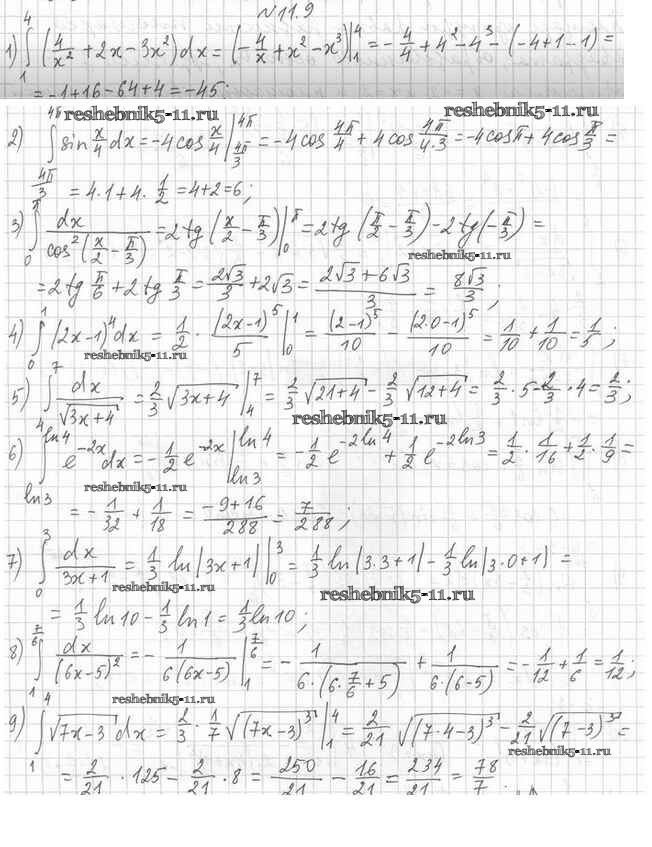 №11.9
1) ∫₁⁴ (4/x² + 2x - 3x²) dx = (-4/x + x² - x³)|₁⁴ = -4/4 + 4² - 4³ - (-4+1-1) =
= -1+16-64+4 = -45;
reshebnik5-11.ru reshebnik5-11.ru
2) ∫_{4π/3}^{4π} sin x/4 dx = -4cos x/4 |_{4π/3}^{4π} = -4cos 4π/4 + 4cos 4π/(4·3) = -4cosπ + 4cos π/3 =
= 4·1+4·1/2 = 4+2 = 6;
3) ∫₀^π dx/cos²(x/2 - π/3) = 2tg(x/2 - π/3)|₀^π = 2tg(π/2 - π/3) - 2tg(-π/3) =
reshebnik5-11.ru
= 2tg π/6 + 2tg π/3 = 2√3/3 + 2√3 = (2√3+6√3)/3 = 8√3/3;
4) ∫₀¹ (2x-1)⁴ dx = 1/2 · (2x-1)⁵/5 |₀¹ = (2-1)⁵/10 - (2·0-1)⁵/10 = 1/10 + 1/10 = 1/5;
reshebnik5-11.ru
5) ∫₄⁷ dx/√(3x+4) = 2/3 √(3x+4) |₄⁷ = 2/3 √(21+4) - 2/3 √(12+4) = 2/3 · 5 - 2/3 · 4 = 2/3;
reshebnik5-11.ru
6) ∫_{ln3}^{ln4} e^{-2x} dx = -1/2 e^{-2x} |_{ln3}^{ln4} = -1/2 e^{-2ln4} + 1/2 e^{-2ln3} = 1/2 · 1/16 + 1/2 · 1/9 =
reshebnik5-11.ru
= -1/32 + 1/18 = (-9+16)/288 = 7/288;
7) ∫₀³ dx/(3x+1) = 1/3 ln|3x+1| |₀³ = 1/3 ln|3·3+1| - 1/3 ln|3·0+1| =
reshebnik5-11.ru reshebnik5-11.ru
= 1/3 ln10 - 1/3 ln1 = 1/3 ln10;
8) ∫₁^{7/6} dx/(6x-5)² = - 1/(6(6x-5)) |₁^{7/6} = - 1/(6·(6·7/6+5)) + 1/(6·(6-5)) = -1/12 + 1/6 = 1/12;
reshebnik5-11.ru
9) ∫₁⁴ √(7x-3) dx = 2/3 · 1/7 √((7x-3)³) |₁⁴ = 2/21 √((7·4-3)³) - 2/21 √((7-3)³) =
reshebnik5-11.ru
= 2/21 · 125 - 2/21 · 8 = 250/21 - 16/21 = 234/21 = 78/7